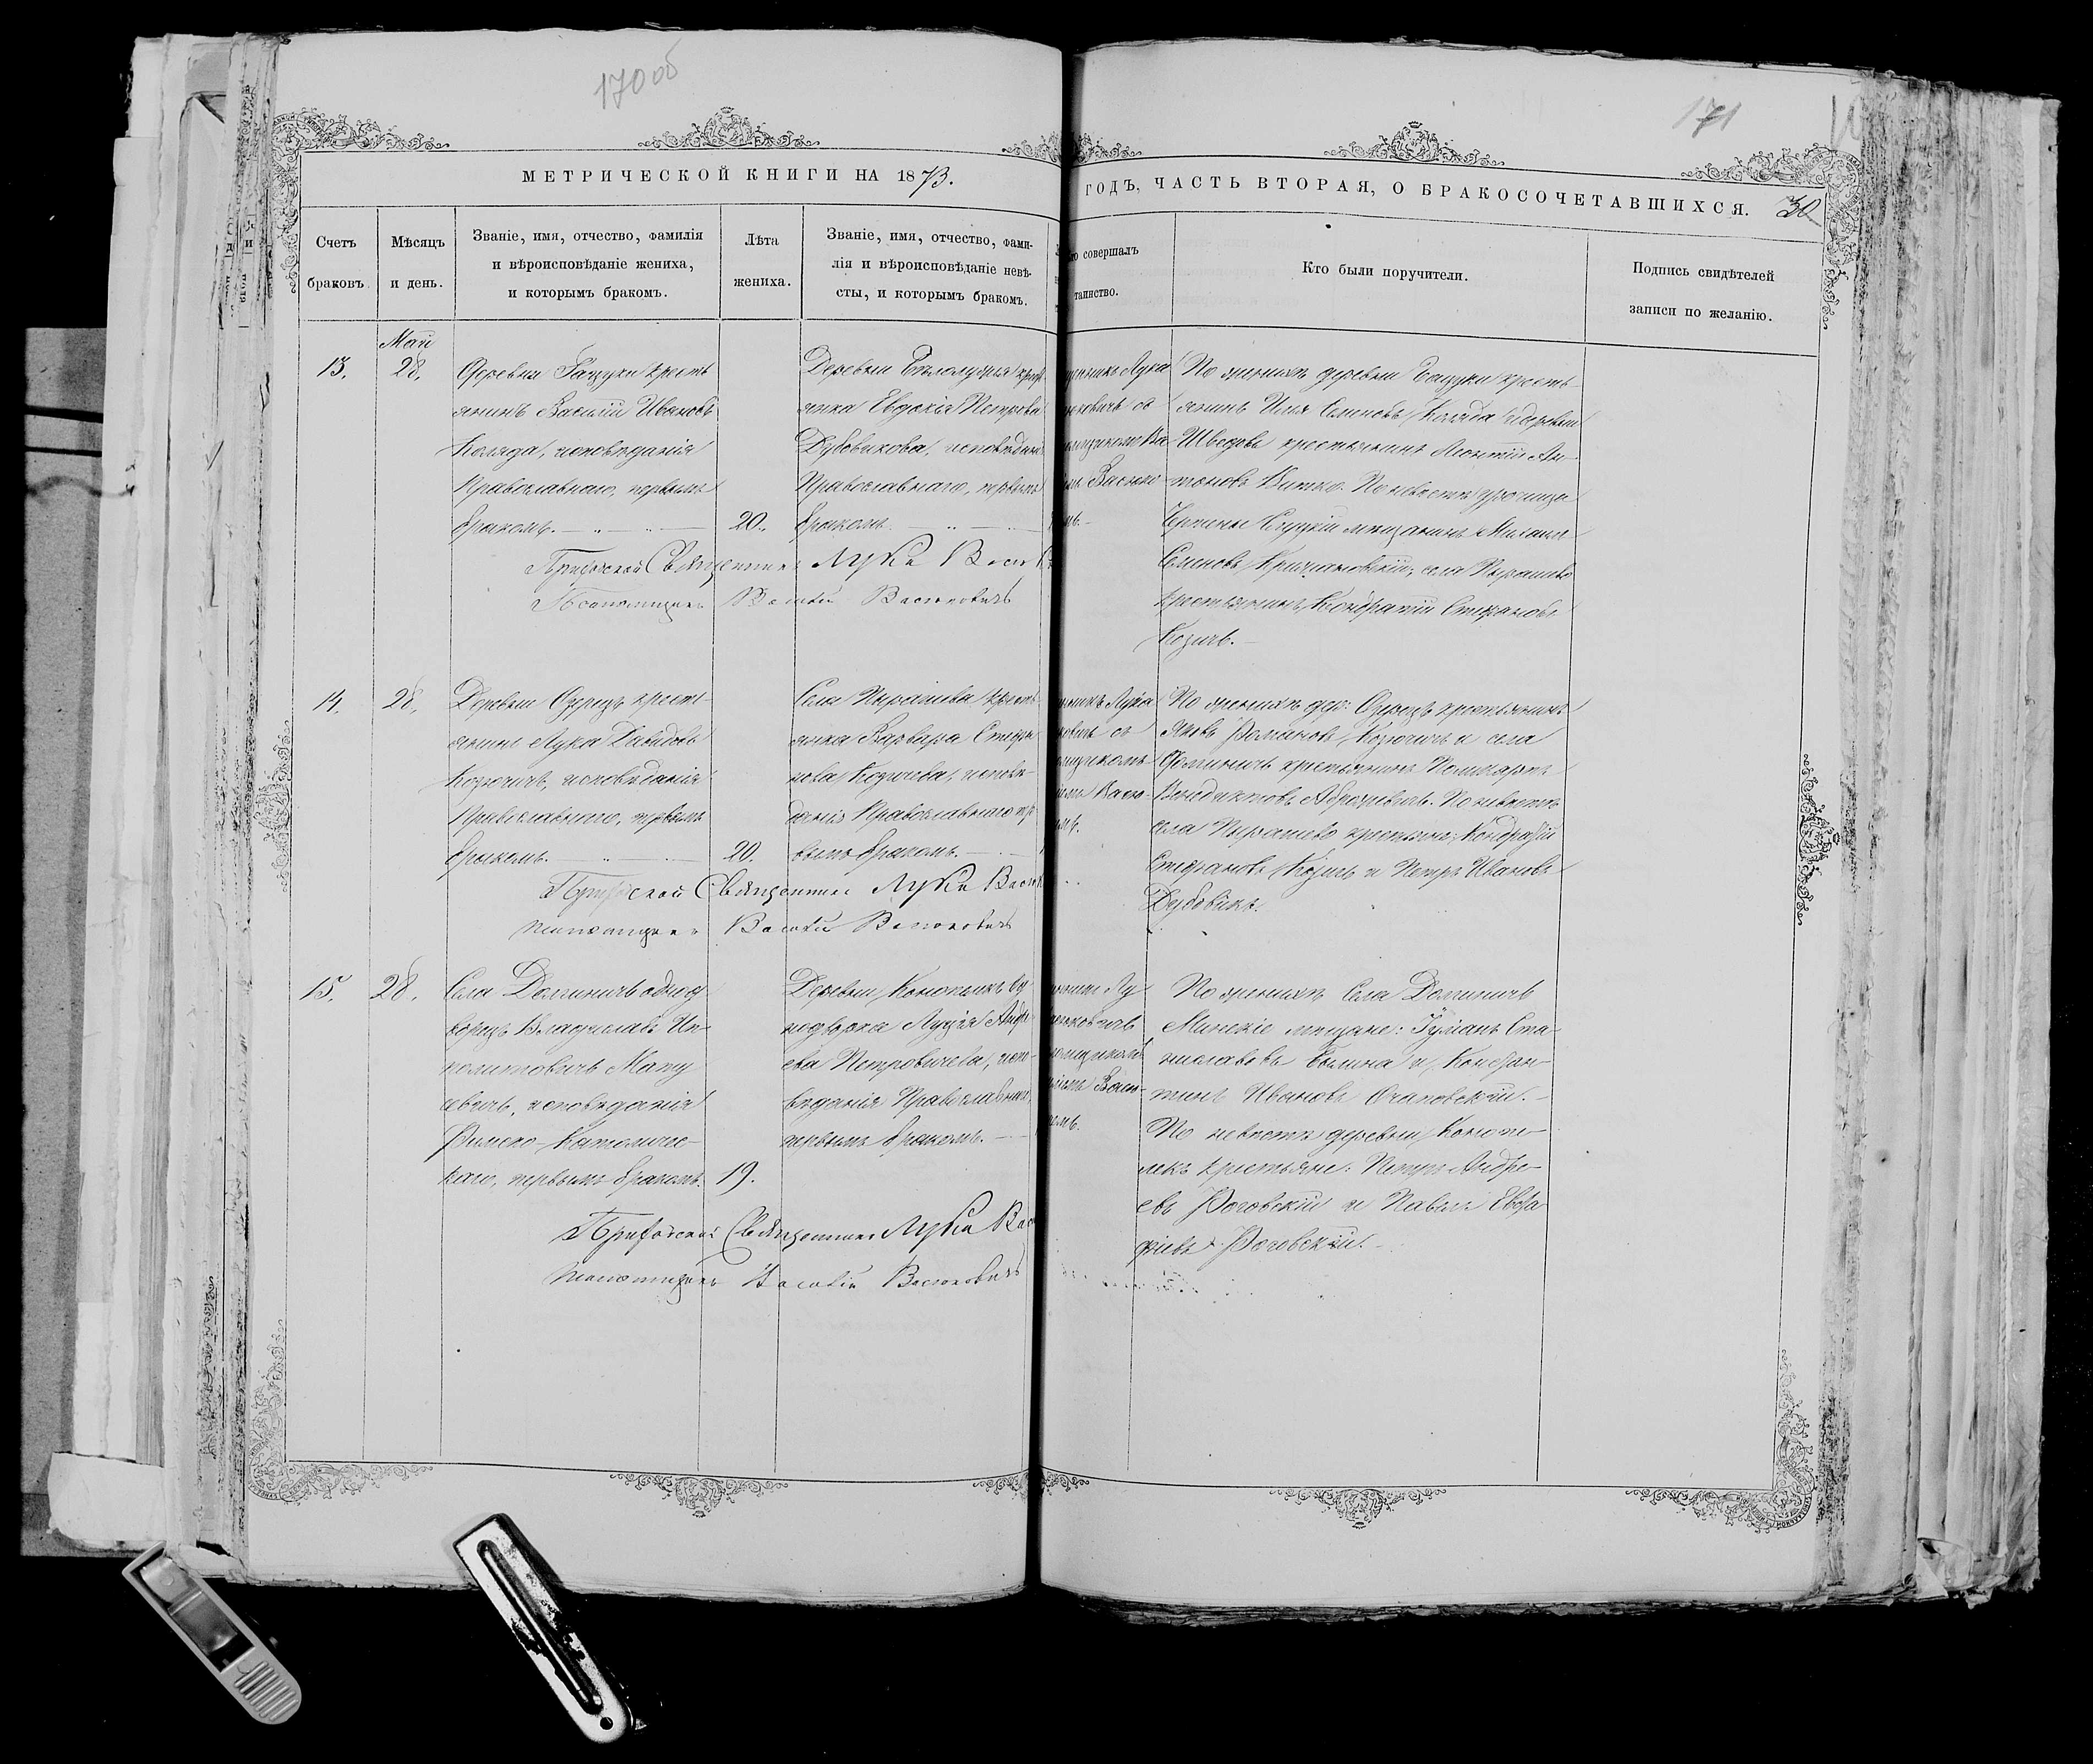 170 об
171
МЕТРИЧЕСКОЙ КНИГИ НА 1873.
ГОДЪ, ЧАСТЬ ВТОРАЯ, О БРАКОСОЧЕТАВШИХСЯ. 30
Счетъ
браковъ.
Мѣсяцъ
и день.
Званіе, имя, отчество, фамилія
и вѣроисповѣданіе жениха,
и которымъ бракомъ.
Лѣта
жениха.
Званіе, имя, отчество, фами-
лія и вѣроисповѣданіе невѣ-
сты, и которымъ бракомъ.
совершалъ
таинство.
Кто были поручители.
Подпись свидѣтелей
записи по желанію.
Май
13.
28.
Деревни кресть
янинъ Василій Ивановъ
Коляда, исповѣданія
Православнаго, первымъ
бракомъ.
20.
Деревни
янка Евдокія Петрова
Дубовикова, исповѣдані
Православнаго, первымъ
бракомъ
Лука
По женихѣ деревни кресть
янинъ Илья Семеновъ Коляда и деревни
Шведовъ крестьянинъ Леонтій Ан-
тоновъ По невѣстѣ урочища
Слуцкій мещанинъ Михаилъ
Семеновъ села Пырашево
крестьянинъ Кондратій Стефановъ
Козичъ.
Приходской Священникъ Лука
Псаломщикъ Василій Васюковичъ
14.
28.
Деревни Озерецъ кресть
янинъ Лука Давидовъ
Козючичъ, исповѣданія
Православнаго, первымъ
бракомъ.
20.
Села Пырашева кресть
янка Варвара Стефа
нова Козичева, исповѣ-
данія Православнаго пер
вымъ бракомъ.
Лука
По женихѣ дер: Озерецъ крестьянинъ
Яковъ Романовъ Козючичъ и села
Долиничъ крестьянинъ
По невѣстѣ
села Пырашево крестьян: Кондратій
Стефановъ Козичъ и Петръ Ивановъ
Дубовикъ.
Приходской Священникъ Лука
Псаломщикъ Василій Васюковичъ
15.
28.
Села Долиничъ однод
ворецъ Владиславъ Ип
политовичъ Мату
севичъ, исповѣданія
Римско-Католичес-
каго, первымъ бракомъ.
19.
Деревни
нодворка Луція Андре
ева Петровичева, испо-
вѣданія Православнаго,
первымъ бракомъ.
По женихѣ Села Долиничъ
Минскіе мещане: Іуліанъ Ста-
ниславовъ Былина и Констан-
тинъ Ивановъ
По невѣстѣ деревни
крестьяне: Петръ Андре-
евъ Роговскій и Павелъ Евста
фіевъ Роговскій.
Приходской Священникъ Лука
Псаломщикъ Василій Васюковичъ